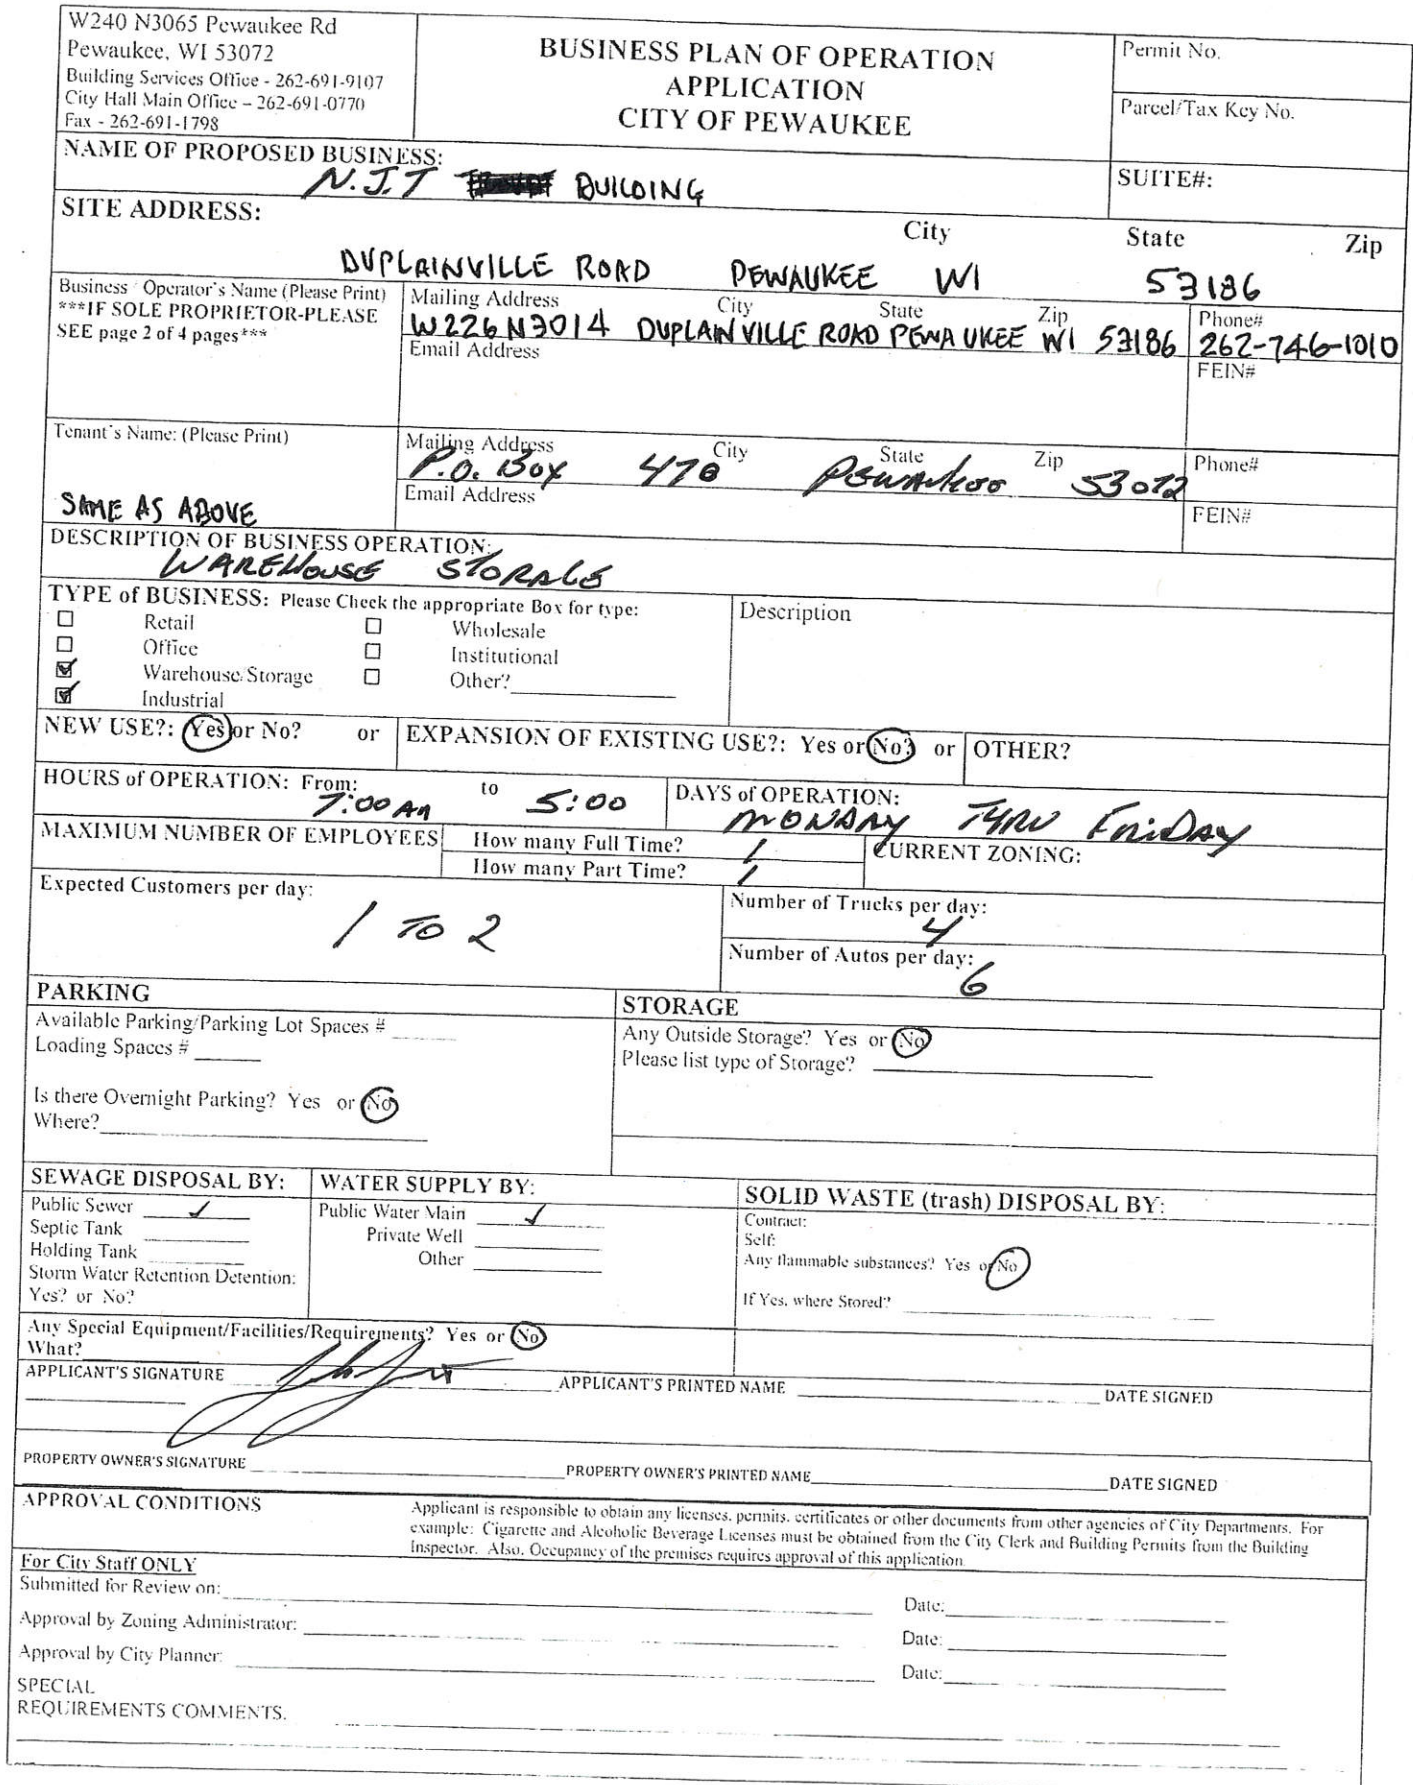 W240 N3065 Pewaukee Rd
Pewaukee, WI 53072
Building Services Office - 262-691-9107
City Hall Main Office – 262-691-0770
Fax - 262-691-1798
BUSINESS PLAN OF OPERATION
APPLICATION
CITY OF PEWAUKEE
Permit No.
Parcel/Tax Key No.
NAME OF PROPOSED BUSINESS:
N.J.T BUILDING
SUITE#:
SITE ADDRESS: City State Zip
DUPLAINVILLE ROAD PEWAUKEE WI 53186
Business / Operator's Name (Please Print)
***IF SOLE PROPRIETOR-PLEASE
SEE page 2 of 4 pages***
Mailing Address City State Zip
W226N3014 DUPLAINVILLE ROAD PEWAUKEE WI 53186
Email Address
Phone#
262-746-1010
FEIN#
Tenant's Name: (Please Print)
SAME AS ABOVE
Mailing Address City State Zip
P.O. Box 470 Pewaukee 53072
Email Address
Phone#
FEIN#
DESCRIPTION OF BUSINESS OPERATION:
WAREHOUSE STORAGE
TYPE of BUSINESS: Please Check the appropriate Box for type:
Retail Wholesale
Office Institutional
Warehouse/Storage Other?
Industrial
Description
NEW USE?: Yes or No? or EXPANSION OF EXISTING USE?: Yes or No? or OTHER?
HOURS of OPERATION: From: to
7:00 AM 5:00
DAYS of OPERATION:
MONDAY THRU FRIDAY
MAXIMUM NUMBER OF EMPLOYEES
How many Full Time? 1
How many Part Time? 1
CURRENT ZONING:
Expected Customers per day:
1 TO 2
Number of Trucks per day:
4
Number of Autos per day:
6
PARKING
Available Parking/Parking Lot Spaces #
Loading Spaces #
Is there Overnight Parking? Yes or No
Where?
STORAGE
Any Outside Storage? Yes or No
Please list type of Storage?
SEWAGE DISPOSAL BY:
Public Sewer ✓
Septic Tank
Holding Tank
Storm Water Retention Detention:
Yes? or No?
WATER SUPPLY BY:
Public Water Main ✓
Private Well
Other
SOLID WASTE (trash) DISPOSAL BY:
Contract:
Self:
Any flammable substances? Yes or No
If Yes, where Stored?
Any Special Equipment/Facilities/Requirements? Yes or No
What?
APPLICANT'S SIGNATURE APPLICANT'S PRINTED NAME DATE SIGNED
PROPERTY OWNER'S SIGNATURE PROPERTY OWNER'S PRINTED NAME DATE SIGNED
APPROVAL CONDITIONS
Applicant is responsible to obtain any licenses, permits, certificates or other documents from other agencies of City Departments. For
example: Cigarette and Alcoholic Beverage Licenses must be obtained from the City Clerk and Building Permits from the Building
Inspector. Also, Occupancy of the premises requires approval of this application.
For City Staff ONLY
Submitted for Review on: Date:
Approval by Zoning Administrator: Date:
Approval by City Planner: Date:
SPECIAL
REQUIREMENTS COMMENTS.